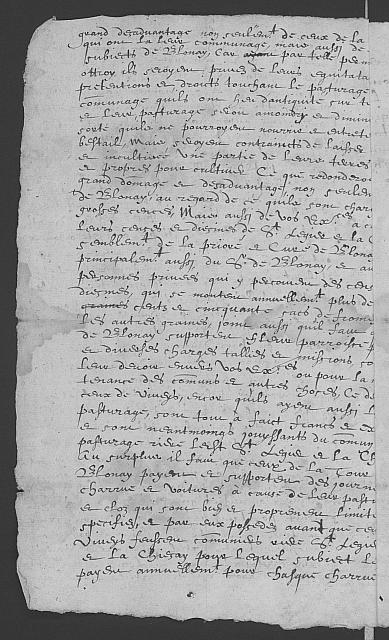 grand desadvantage non seulem^t de ceux de la
qui ont la leur communage, mais aussi de
subiects de Blonay, Car par telle perm
ottroy ils seroyent privez de leurs equitabl
pretentions et droits touchant le pasturage
comunage quils ont heu dantiquité sur
et leur pasturage seroit amoindry et diminu
sorte quils ne pourroyent nourrir et entrete
bestail, Mais seroyent contraincts de laisser
et incultivee une partie de leurs terres
et propres pour cultiver, Ce que redonderoit
grand domage et desadvantage, non seulem
de Blonay, au regard de ce quils sont char
grosses censes, Mais aussi de vos Ex^ces a
leurs censes et diesmes de S^t Legier et la C
semblem^t de la prioré et Cure de Blonay
principalem^t aussi du S^r de Blonay et au
personnes privees qui y perçoivent des cens
diesmes, qui se montent annuellem^t plus de
cents et cinquante sacs de from
les autres graines, joint aussi quil faut
de Blonay supportent leur parroisse
et diverses charges tailles et missions, co
leur devoir envers vos Ex^ces ou pour la
tenance des comuns et autres choses, Ce
ceux de Vivey, encor quils ayent aussi l
pasturage, sont tout a faict francs et ex
et sont neantmoings jouyssants du comun
pasturage riere lesd^t S^t Legier et la Ch
Au surplus il faut que ceux de la Tour
Blonay payent et supportent des journe
charrue et voitures a cause de leur past
et clos qui sont bien et proprement limite
specifiés, et par eux possedés avant que ceu
Viveys feussent comuniers riere S^t Legie
et la Chiesaz pour lequel subiect le
payent annuellem^t pour chasque charrue